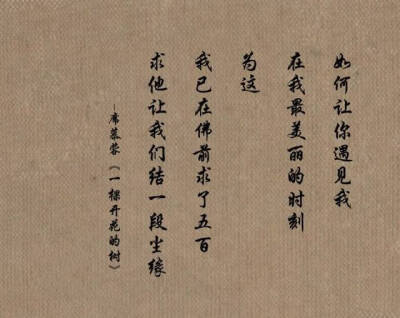 如何让你遇见我
在我最美丽的时刻
为这
我已在佛前求了五百
求他让我们结一段尘缘
–席慕蓉《一棵开花的树》